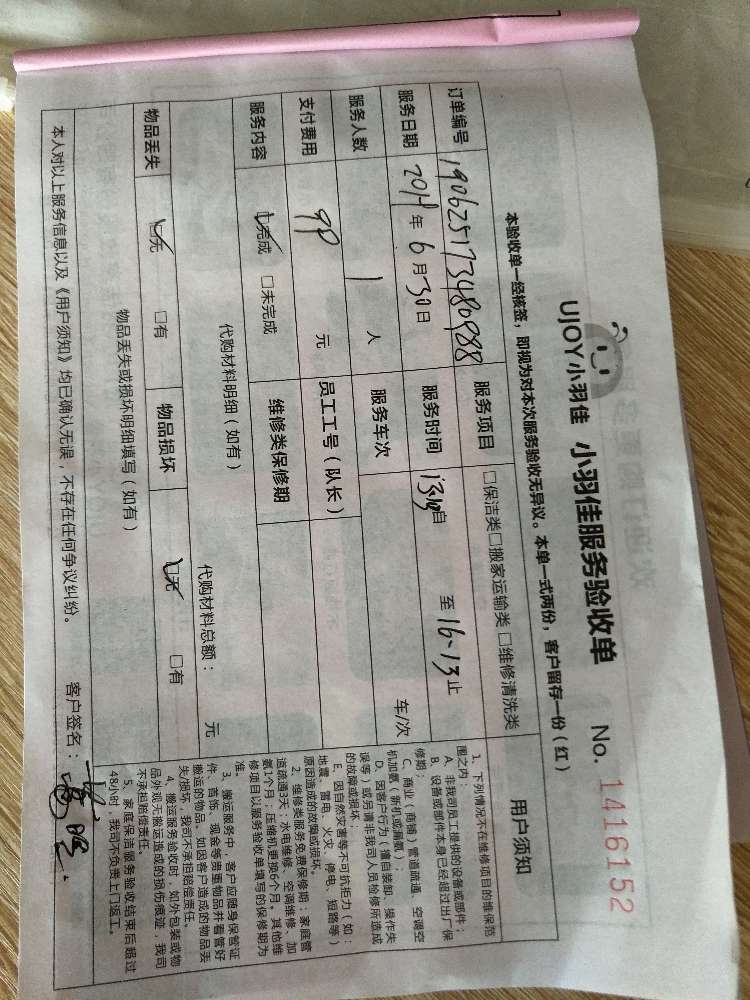 UJOY小羽佳 小羽佳服务验收单 No. 1416152
本验收单一经核签，即视为对本次服务验收无异议。本单一式两份，客户留存一份（红）
订单编号 190625173480988 服务项目 □保洁类□搬家运输类□维修清洗类
服务日期 2019年6月30日 服务时间 自 至16-13止
服务人数 1 人 服务车次 车/次
支付费用 99 元 员工工号（队长）
服务内容 □完成 □未完成 维修类保修期
代购材料明细（如有） 代购材料总额： 元
物品丢失 □无 □有 物品损坏 □无 □有
物品丢失或损坏明细填写（如有）
本人对以上服务信息以及《用户须知》均已确认无误，不存在任何争议纠纷。 客户签名：
用户须知
1、下列情况不在维修项目的维保范
围之内：
A、非我司员工提供的设备或部件；
B、设备或部件本身已经超过出厂保
修期；
C、商业（商铺）管道疏通、空调空
机加氨（新机或漏氨）；
D、因客户行为（擅自装卸、操作失
误等）或另请非我司人员检修所造成
的故障或损坏；
E、因自然灾害等不可抗拒力（如：
地震、雷电、火灾、停电、短路等）
原因造成的故障或损坏。
2、维修类服务免费保修期：家庭管
道疏通3天；水电维修、空调维修、加
氨1个月；压缩机更换6个月。其他维
修项目以服务验收单填写的保修期为
准。
3、搬运服务中，客户应随身保管证
件、首饰、现金等贵重物品并看管好
搬运的物品。如因客户造成的物品丢
失/损坏，我司不承担赔偿责任。
4、搬运服务验收时，如外包装或物
品外观无搬运造成的损伤痕迹，我司
不承担赔偿责任。
5、家庭保洁服务验收结束后超过
48小时，我司不负责上门返工。